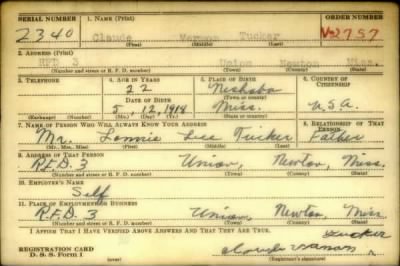 SERIAL NUMBER 1. NAME (Print) ORDER NUMBER
2340 Claude Vernon Tucker V2757
(First) (Middle) (Last)
2. ADDRESS (Print)
RFD 3 Union Newton Miss.
(Number and street or R. F. D. number) (Town) (County) (State)
3. TELEPHONE 4. AGE IN YEARS 5. PLACE OF BIRTH 6. COUNTRY OF CITIZENSHIP
22 Neshoba
DATE OF BIRTH (Town or county)
5, 12, 1918 Miss. U.S.A.
(Exchange) (Number) (Mo.) (Day) (Yr.) (State or country)
7. NAME OF PERSON WHO WILL ALWAYS KNOW YOUR ADDRESS 8. RELATIONSHIP OF THAT PERSON
Mr. Lonnie Lee Tucker Father
(Mr., Mrs., Miss) (First) (Middle) (Last)
9. ADDRESS OF THAT PERSON
R.F.D. 3 Union, Newton, Miss.
(Number and street or R. F. D. number) (Town) (County) (State)
10. EMPLOYER'S NAME
Self
11. PLACE OF EMPLOYMENT OR BUSINESS
R.F.D. 3 Union, Newton, Miss
(Number and street or R. F. D. number) (Town) (County) (State)
I AFFIRM THAT I HAVE VERIFIED ABOVE ANSWERS AND THAT THEY ARE TRUE.
Tucker
REGISTRATION CARD
D. S. S. Form 1 (over) (Registrant's signature)